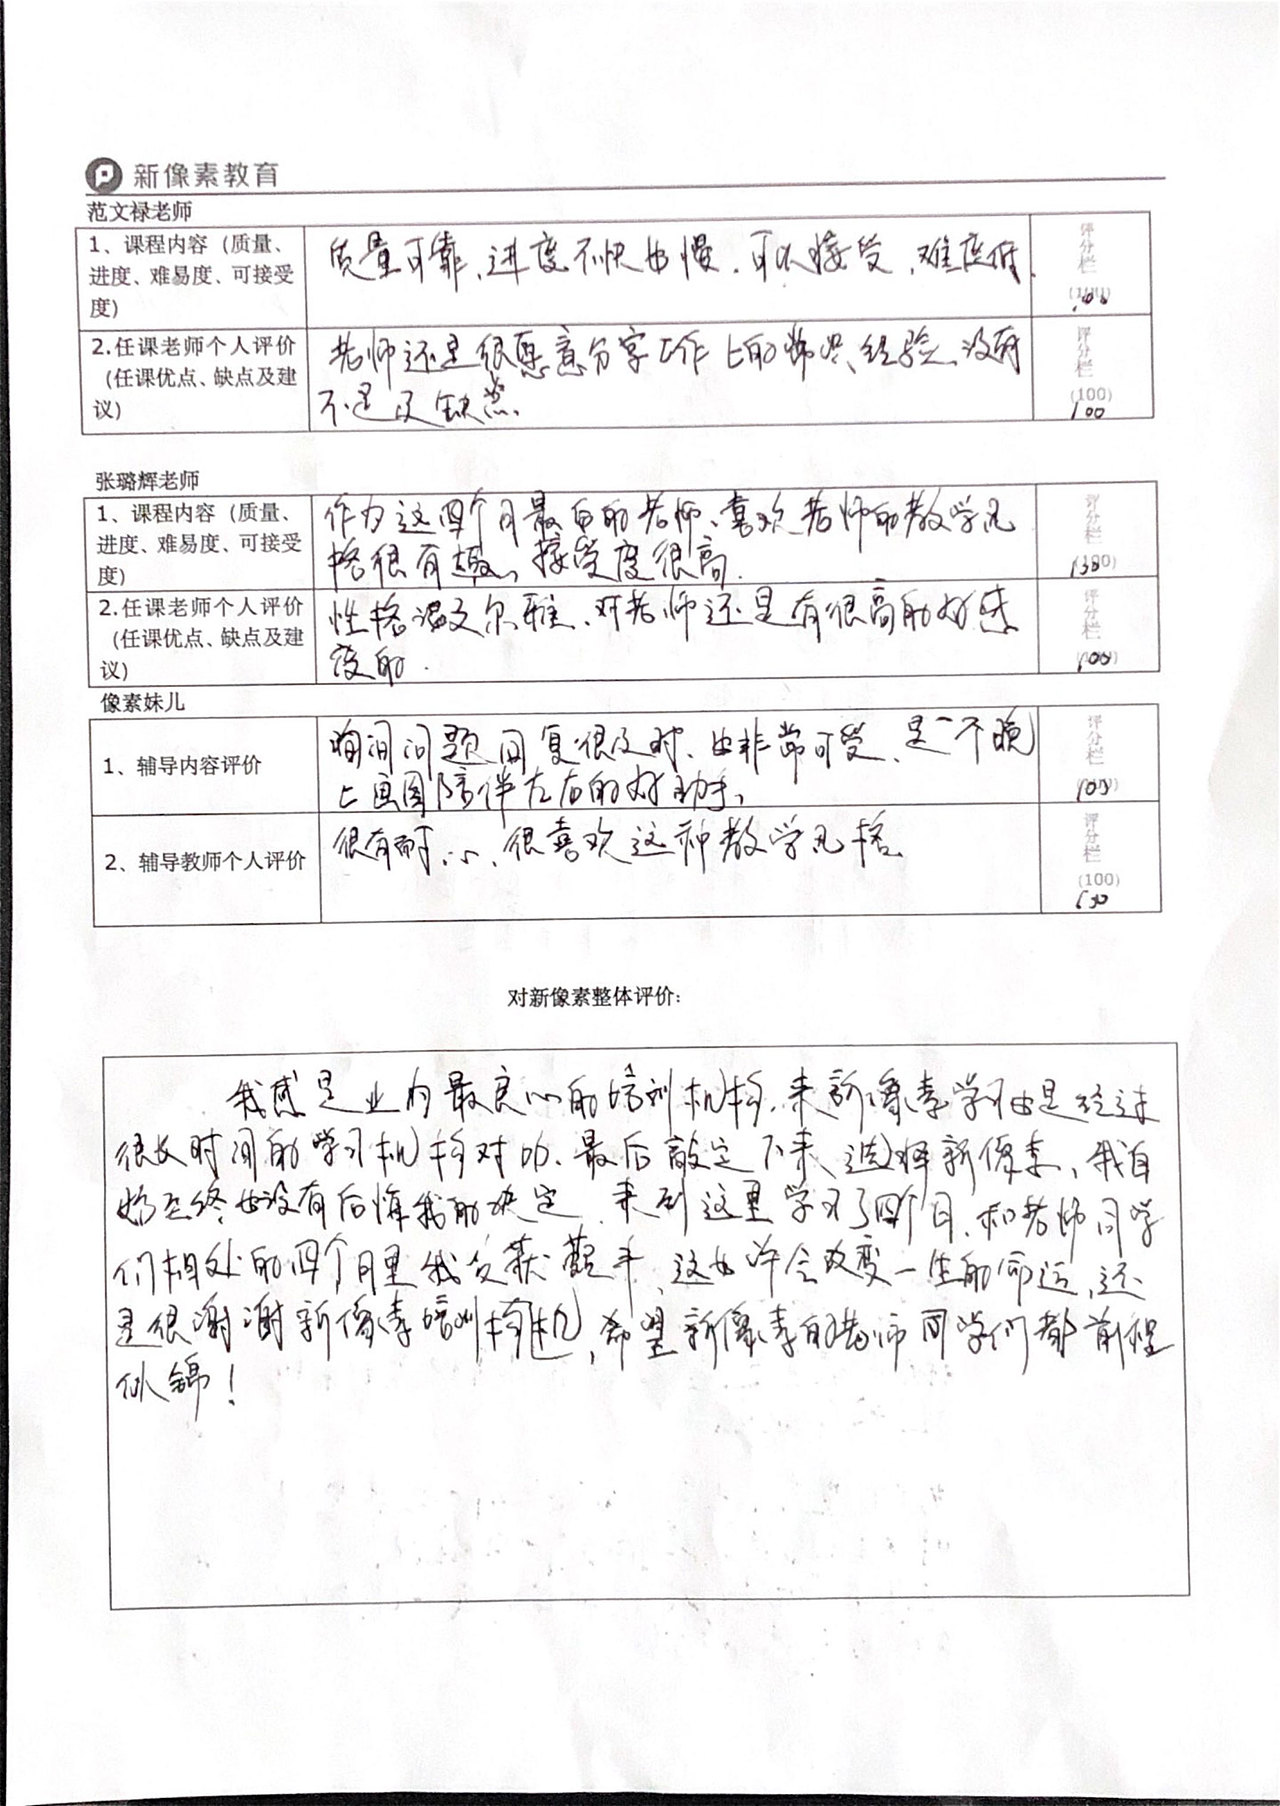 新像素教育
范文禄老师
1、课程内容（质量、
进度、难易度、可接受
度）
质量可靠、进度不快也慢、可以接受、难度低、
评分栏
(100)
100
2.任课老师个人评价
（任课优点、缺点及建
议）
老师还是很愿意分享工作上的 经验、没有
不足及缺点、
评分栏
(100)
100
张璐辉老师
1、课程内容（质量、
进度、难易度、可接受
度）
作为这四个月最后的老师、喜欢老师的教学风
格很有趣、接受度很高.
评分栏
(100)
100
2.任课老师个人评价
（任课优点、缺点及建
议）
性格温文尔雅、对老师还是有很高的好感
度的.
评分栏
(100)
100
像素妹儿
1、辅导内容评价
询问问题回复很及时、也非常可爱、是一个晚
上画图陪伴左右的好助手、
评分栏
(100)
100
2、辅导教师个人评价
很有耐心、很喜欢这种教学风格
评分栏
(100)
100
对新像素整体评价：
我感是业内最良心的培训机构、来新像素学习也是经过
很长时间的学习机构对比、最后敲定下来选择新像素、我自
始至终也没有后悔我的决定、来到这里学习了四个月、和老师同学
们相处的四个月里我受获 、这也许会改变一生的命运、还
是很谢谢新像素培训构机，希望新像素的老师同学们都前程
似锦！